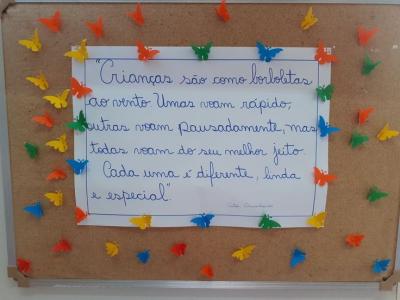 "Crianças são como borboletas
ao vento. Umas voam rápido,
outras voam pausadamente, mas
todas voam do seu melhor jeito.
Cada uma é diferente, linda
e especial".